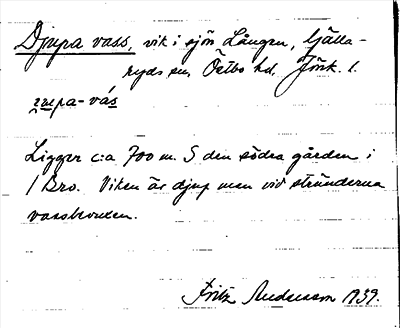 Djupa vass, vik i sjön Lången, Gjälla-
ryds sn, Östbo hd, Jönk. l.
ɉupa-vás
Ligger c:a 700 m. S den södra gården i
/ Bro. Viken är djup men vid stränderna
vassbevuxen.
Fritz Andersson 1939.